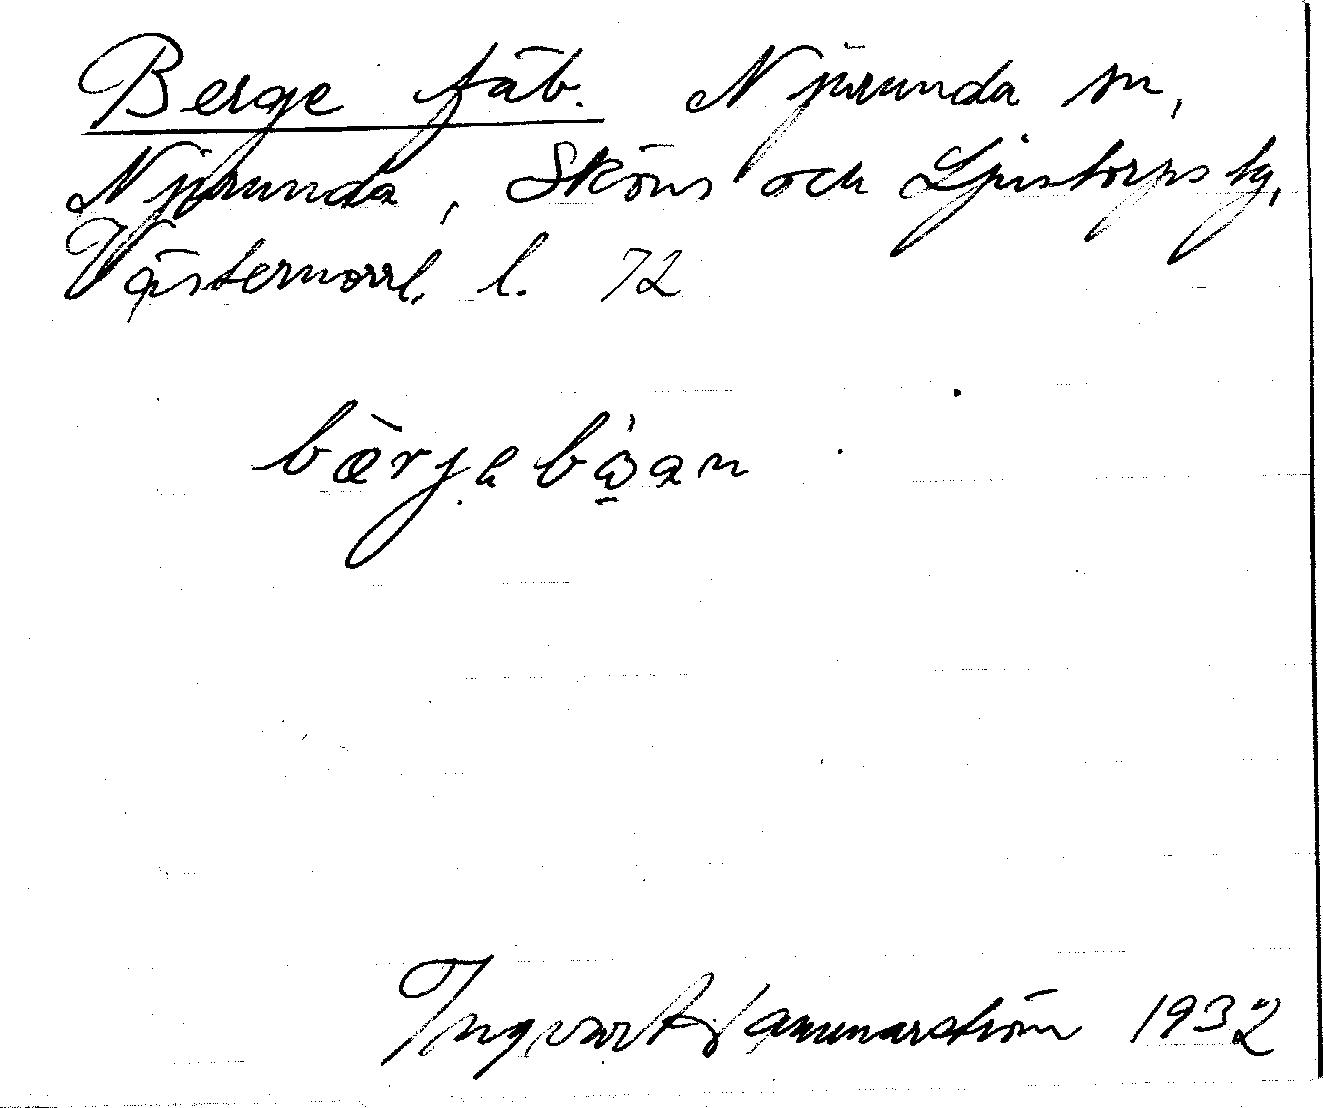 Berge fäb. Njurunda sn,
Njurunda, Sköns och Ljustorps tg,
Västernorrl. l. 72
bærjebo̱an
Ingvar Hammarström 1932